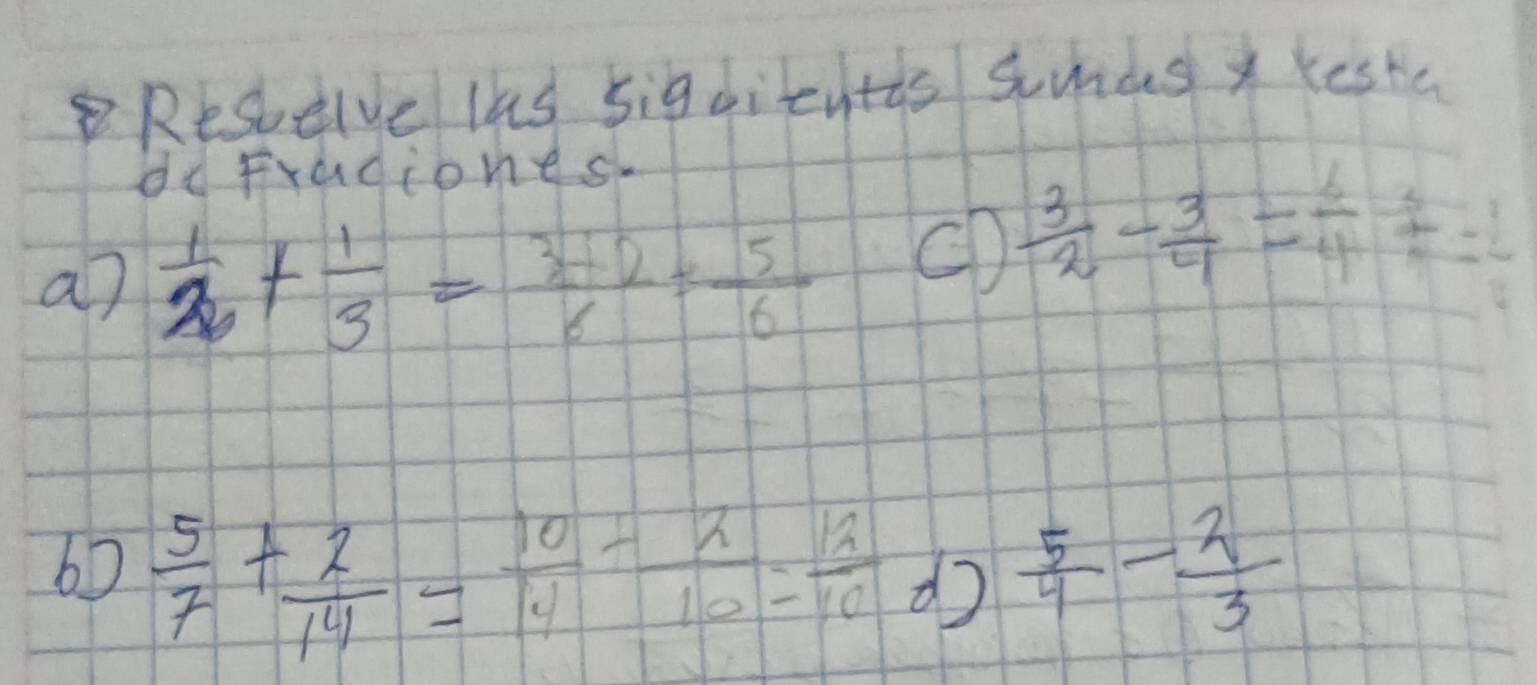 Resuelve las siguientes sumas y resta
de Fraciones.
a) 1/2 + 1/3 = 3+2/6 = 5/6
c) 3/2 - 3/4 = 6/4
b) 5/7 + 2/14 = 10/14 + 2/10 = 12/10
d) 5/4 - 2/3